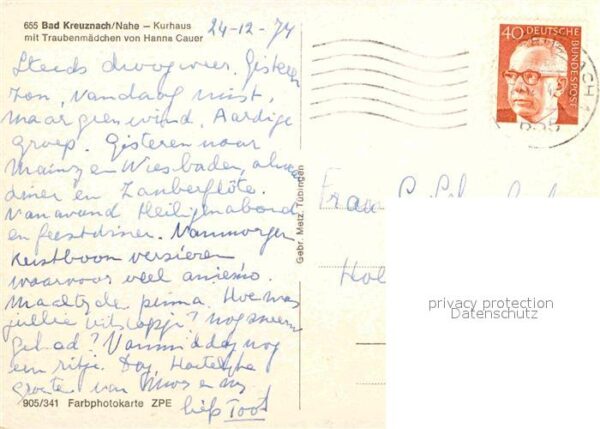 655 Bad Kreuznach/Nahe — Kurhaus
mit Traubenmädchen von Hanna Cauer
24-12-74
Steeds droog weer. Gisteren
zon, vandaag mist,
maar geen wind. Aardige
groep. Gisteren naar
Mainz en Wiesbaden,
diner en Zauberflöte.
Vanavond Heiligenabond
en feestdiner. Vanmorgen
Kerstboom versieren
waarvoor veel animo.
Maaltijden prima. Hoe was
jullie uitstapje? nog sneeuw
gehad? Vanmiddag nog
een ritje. Dag, Hartelijke
groeten van
liefs Toot
905/341 Farbphotokarte ZPE
Gebr. Metz, Tübingen
40 DEUTSCHE
BUNDESPOST
Frau
Hol
privacy protection
Datenschutz